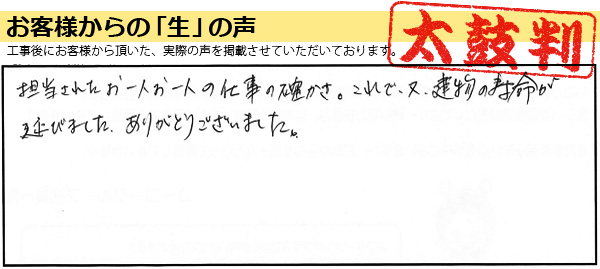 お客様からの「生」の声
工事後にお客様から頂いた、実際の声を掲載させていただいております。
太鼓判
担当されたお一人お一人の仕事の確かさ。これで、又、建物の寿命が
延びました。ありがとうございました。